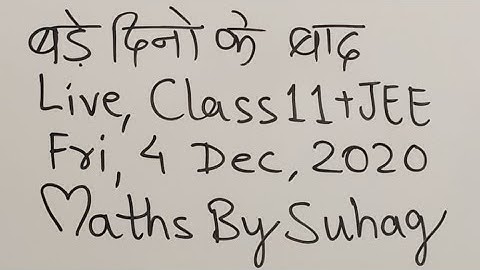 बड़े दिनो के बाद
Live, Class 11+JEE
Fri, 4 Dec, 2020
Maths By Suhag